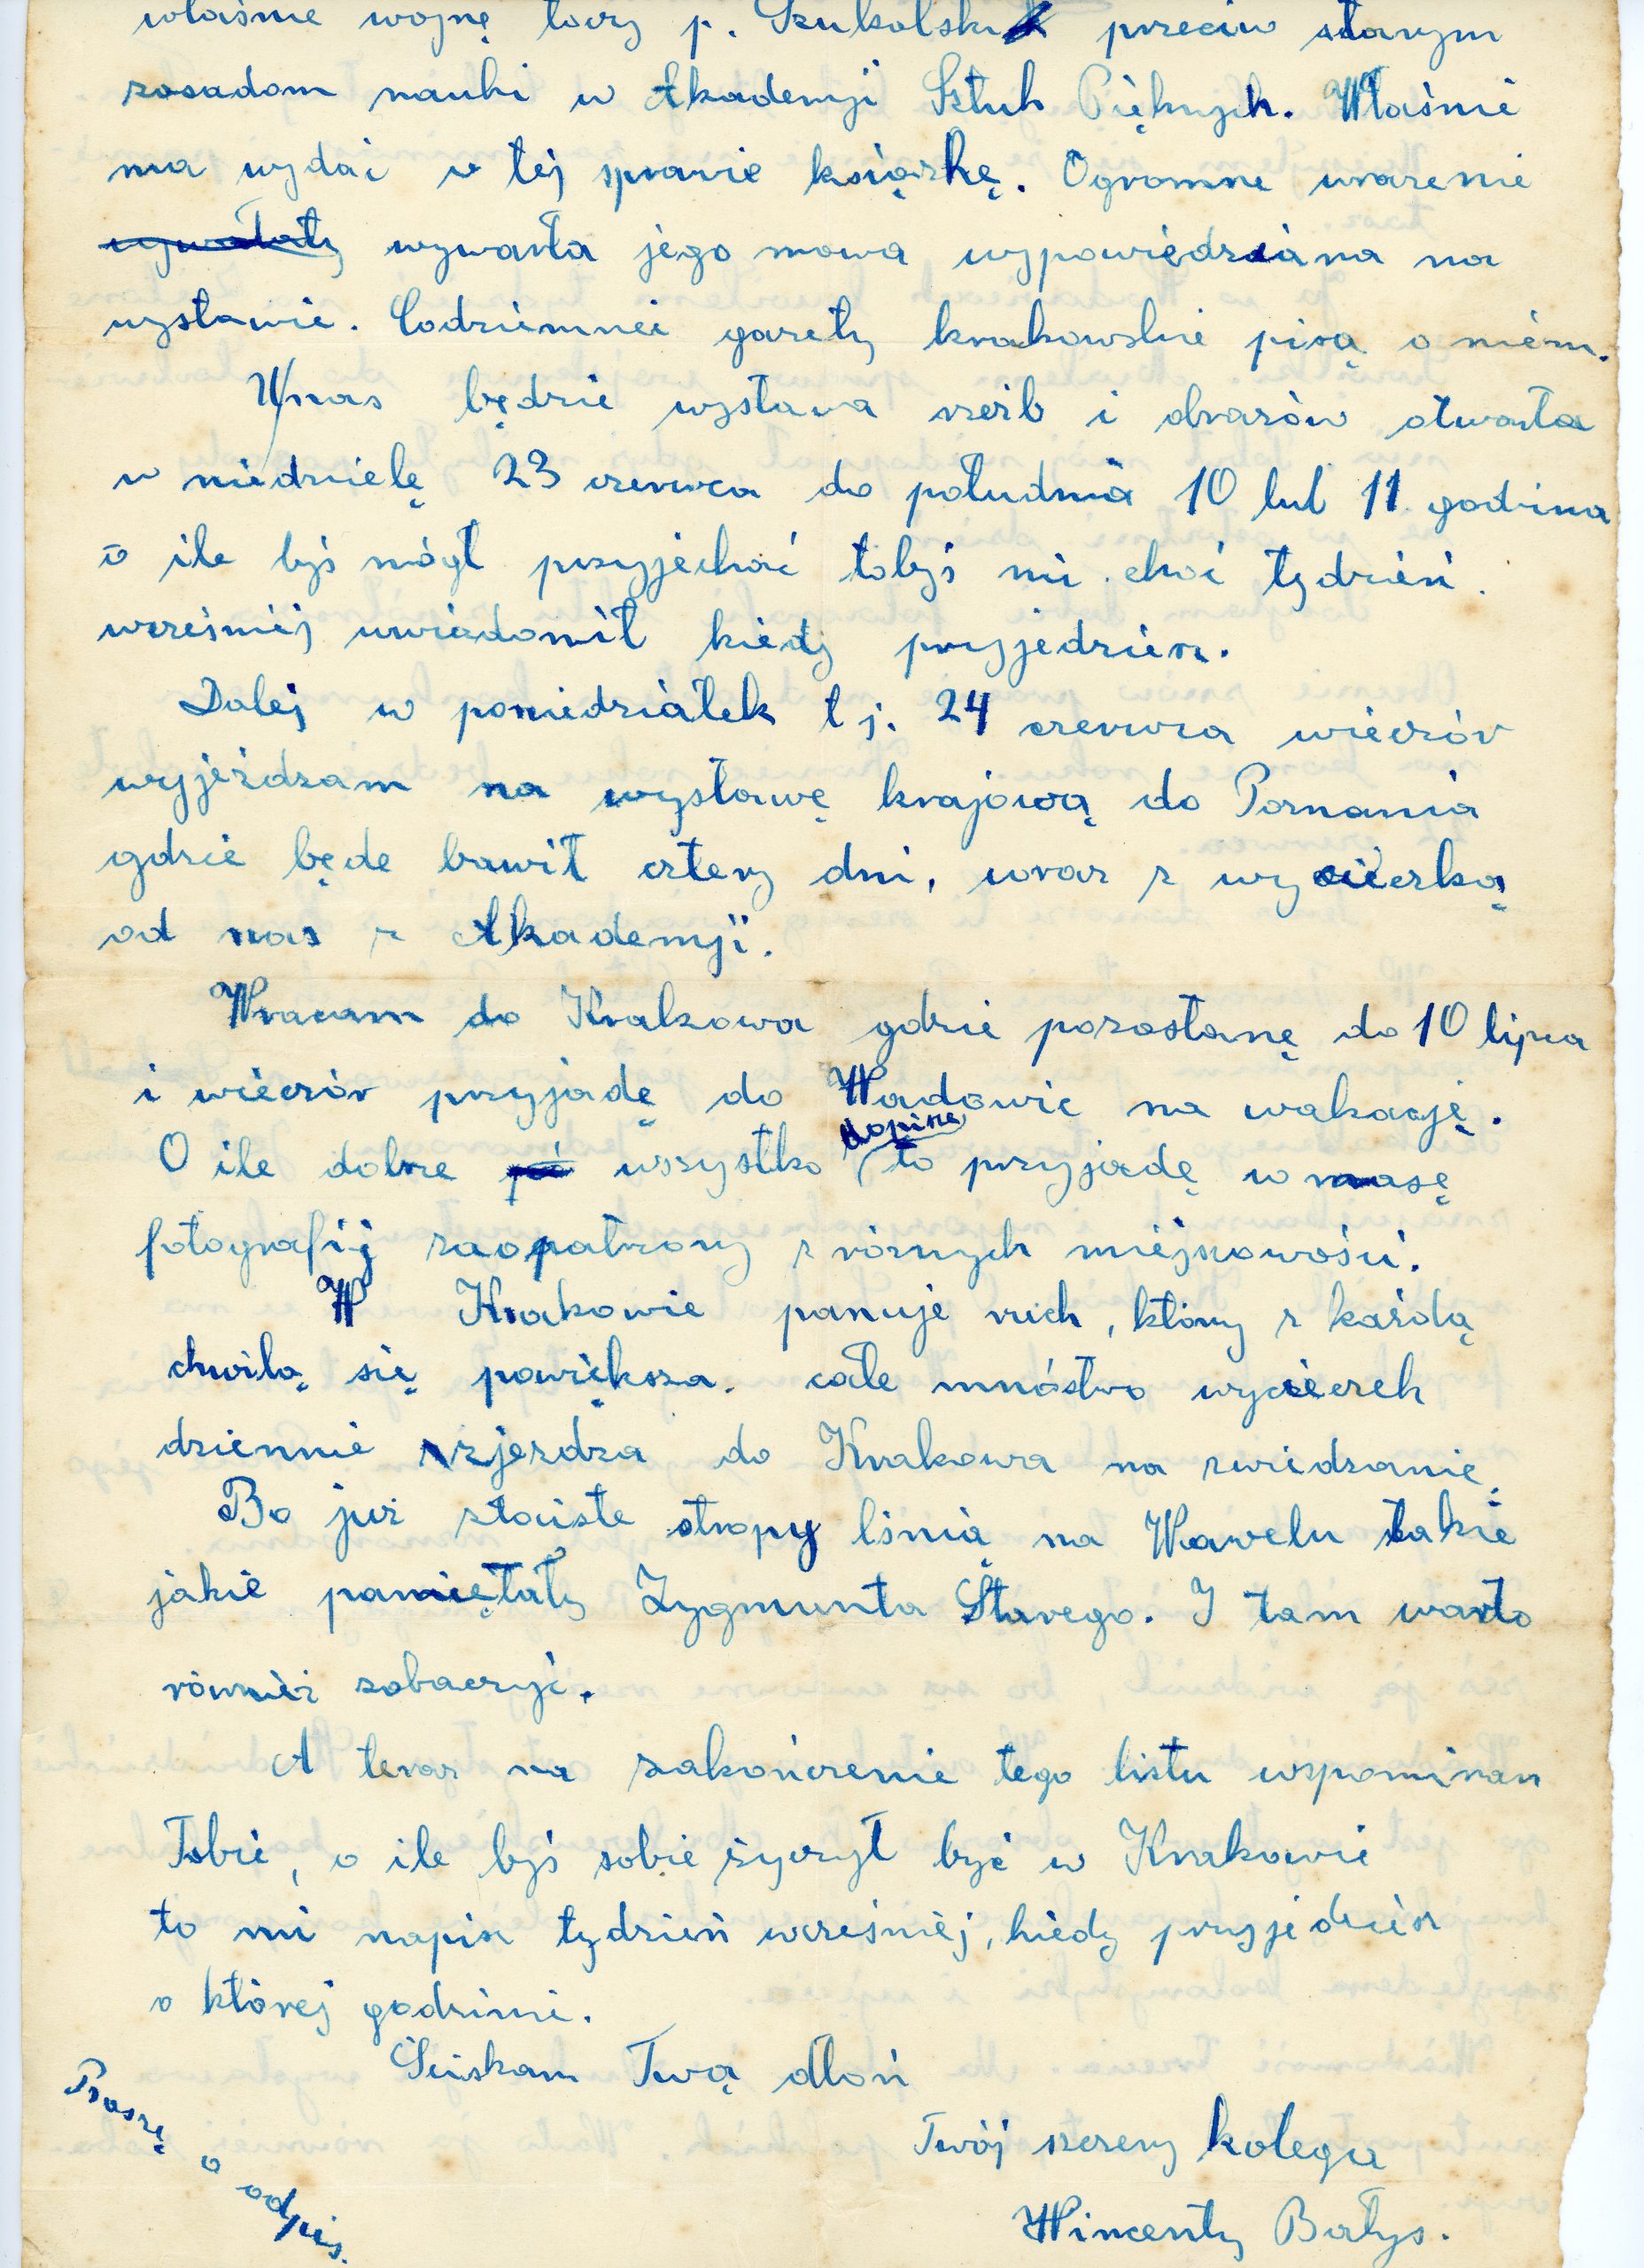 właśnie wojnę toczy p. Szukalski przeciw starym
zasadom nauki w Akademji Sztuk Pięknych. Właśnie
ma wydać w tej sprawie książkę. Ogromne wrażenie
wywołały wywarła jego mowa wypowiedziana na
wystawie. Codziennei gazety krakowskie piszą o niem.
U nas będzie wystawa rzeźb i obrazów otwarta
w niedzielę 23 czerwca do południa 10 lub 11 godzina
o ile byś mógł przyjechać tobyś mi choć tydzień
wcześniej uwiadomił kiedy przyjedziesz.
Dalej w poniedziałek t j. 24 czerwca wieczór
wyjeżdzam na wystawę krajową do Poznania
gdzie będe bawił cztery dni, wraz z wycieczką
od nas z Akademji.
Wracam do Krakowa gdzie pozostanę do 10 lipca
i wieczór przyjadę do Wadowic na wakację.
dopisze
O ile dobre pó wszystko to przyjadę w masę
fotografij zaopatrzony z różnych miejscowości.
W Krakowie panuje ruch, który z każdą
chwilą się powiększa. całe mnóstwo wycieczek
dziennie zjeżdza do Krakowa na zwiedzanie.
Bo już złociste stropy lśnią na Wawelu takie
jakie pamiętały Zygmunta Starego. I tam warto
również zobaczyć.
A teraz na zakończenie tego listu wspominam
Tobie, o ile byś sobie życzył być w Krakowie
to mi napisz tydzień wcześniej, kiedy przyjedziesz
o której godzinie.
Ściskam Twą dłoń
Twój szczery kolega
Wincenty Bałys.
Proszę o odpis.